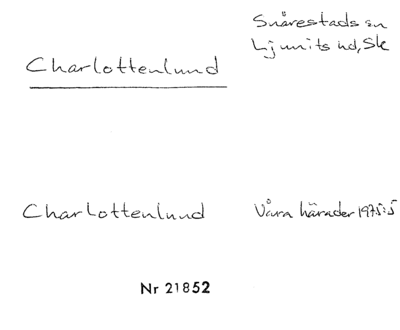 Snårestads sn
Ljunits hd, Sk
Charlottenlund
Charlottenlund
Våra härader 1975:5
Nr 21852